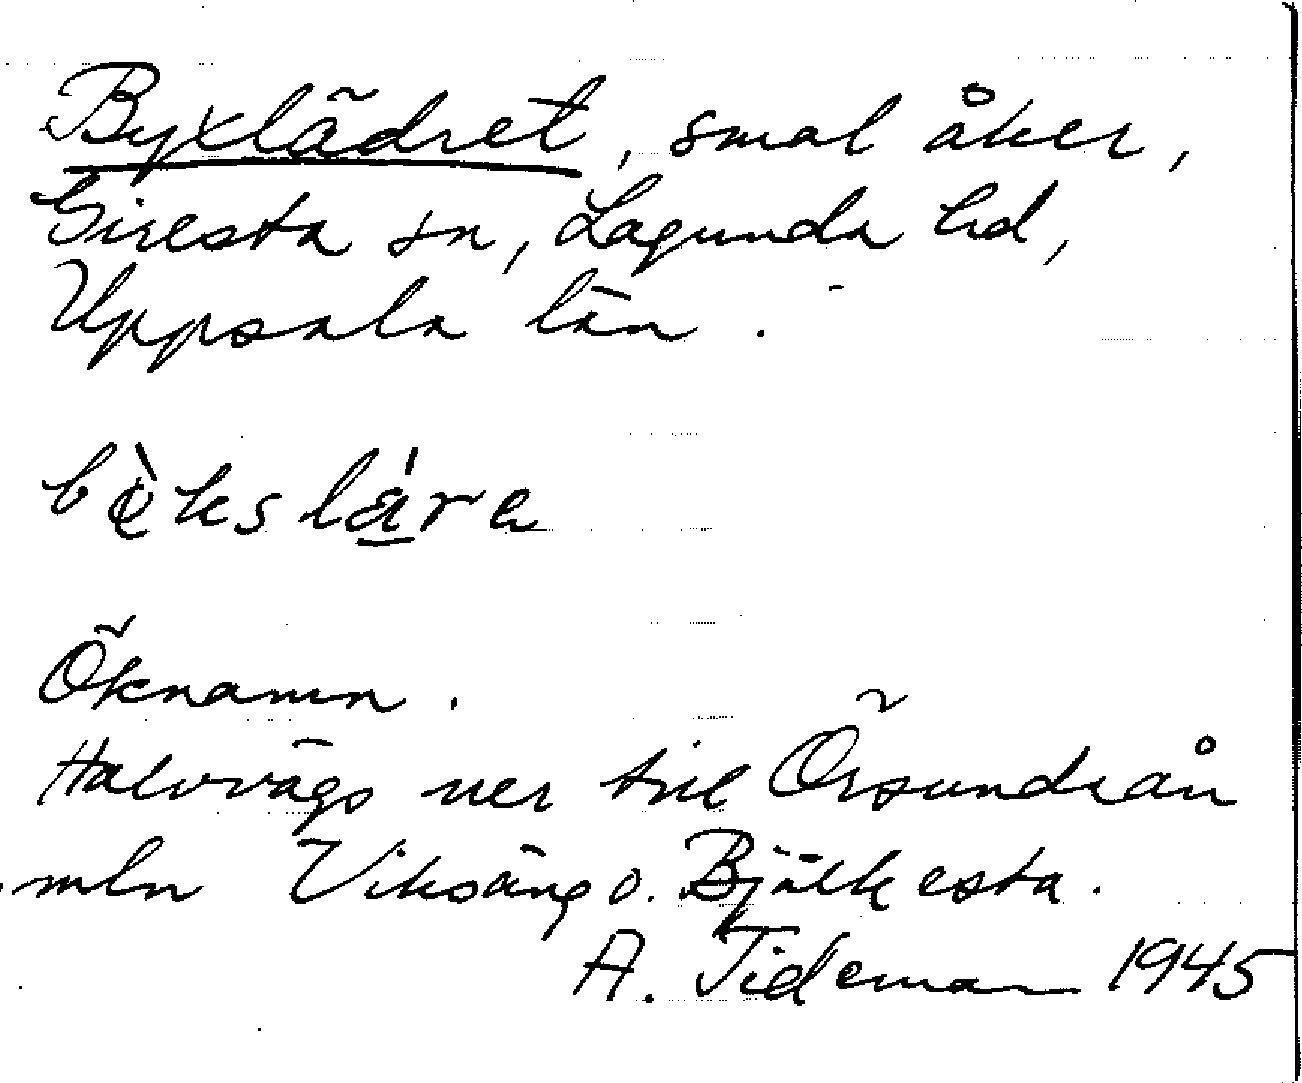 Byxlädret, smal åker,
Giresta sn, Lagunda hd,
Uppsala län.
Öknamn.
Halvvägs ner till Örsundaån
mln Viksäng o. Bjälkesta.
A. Tideman 1945